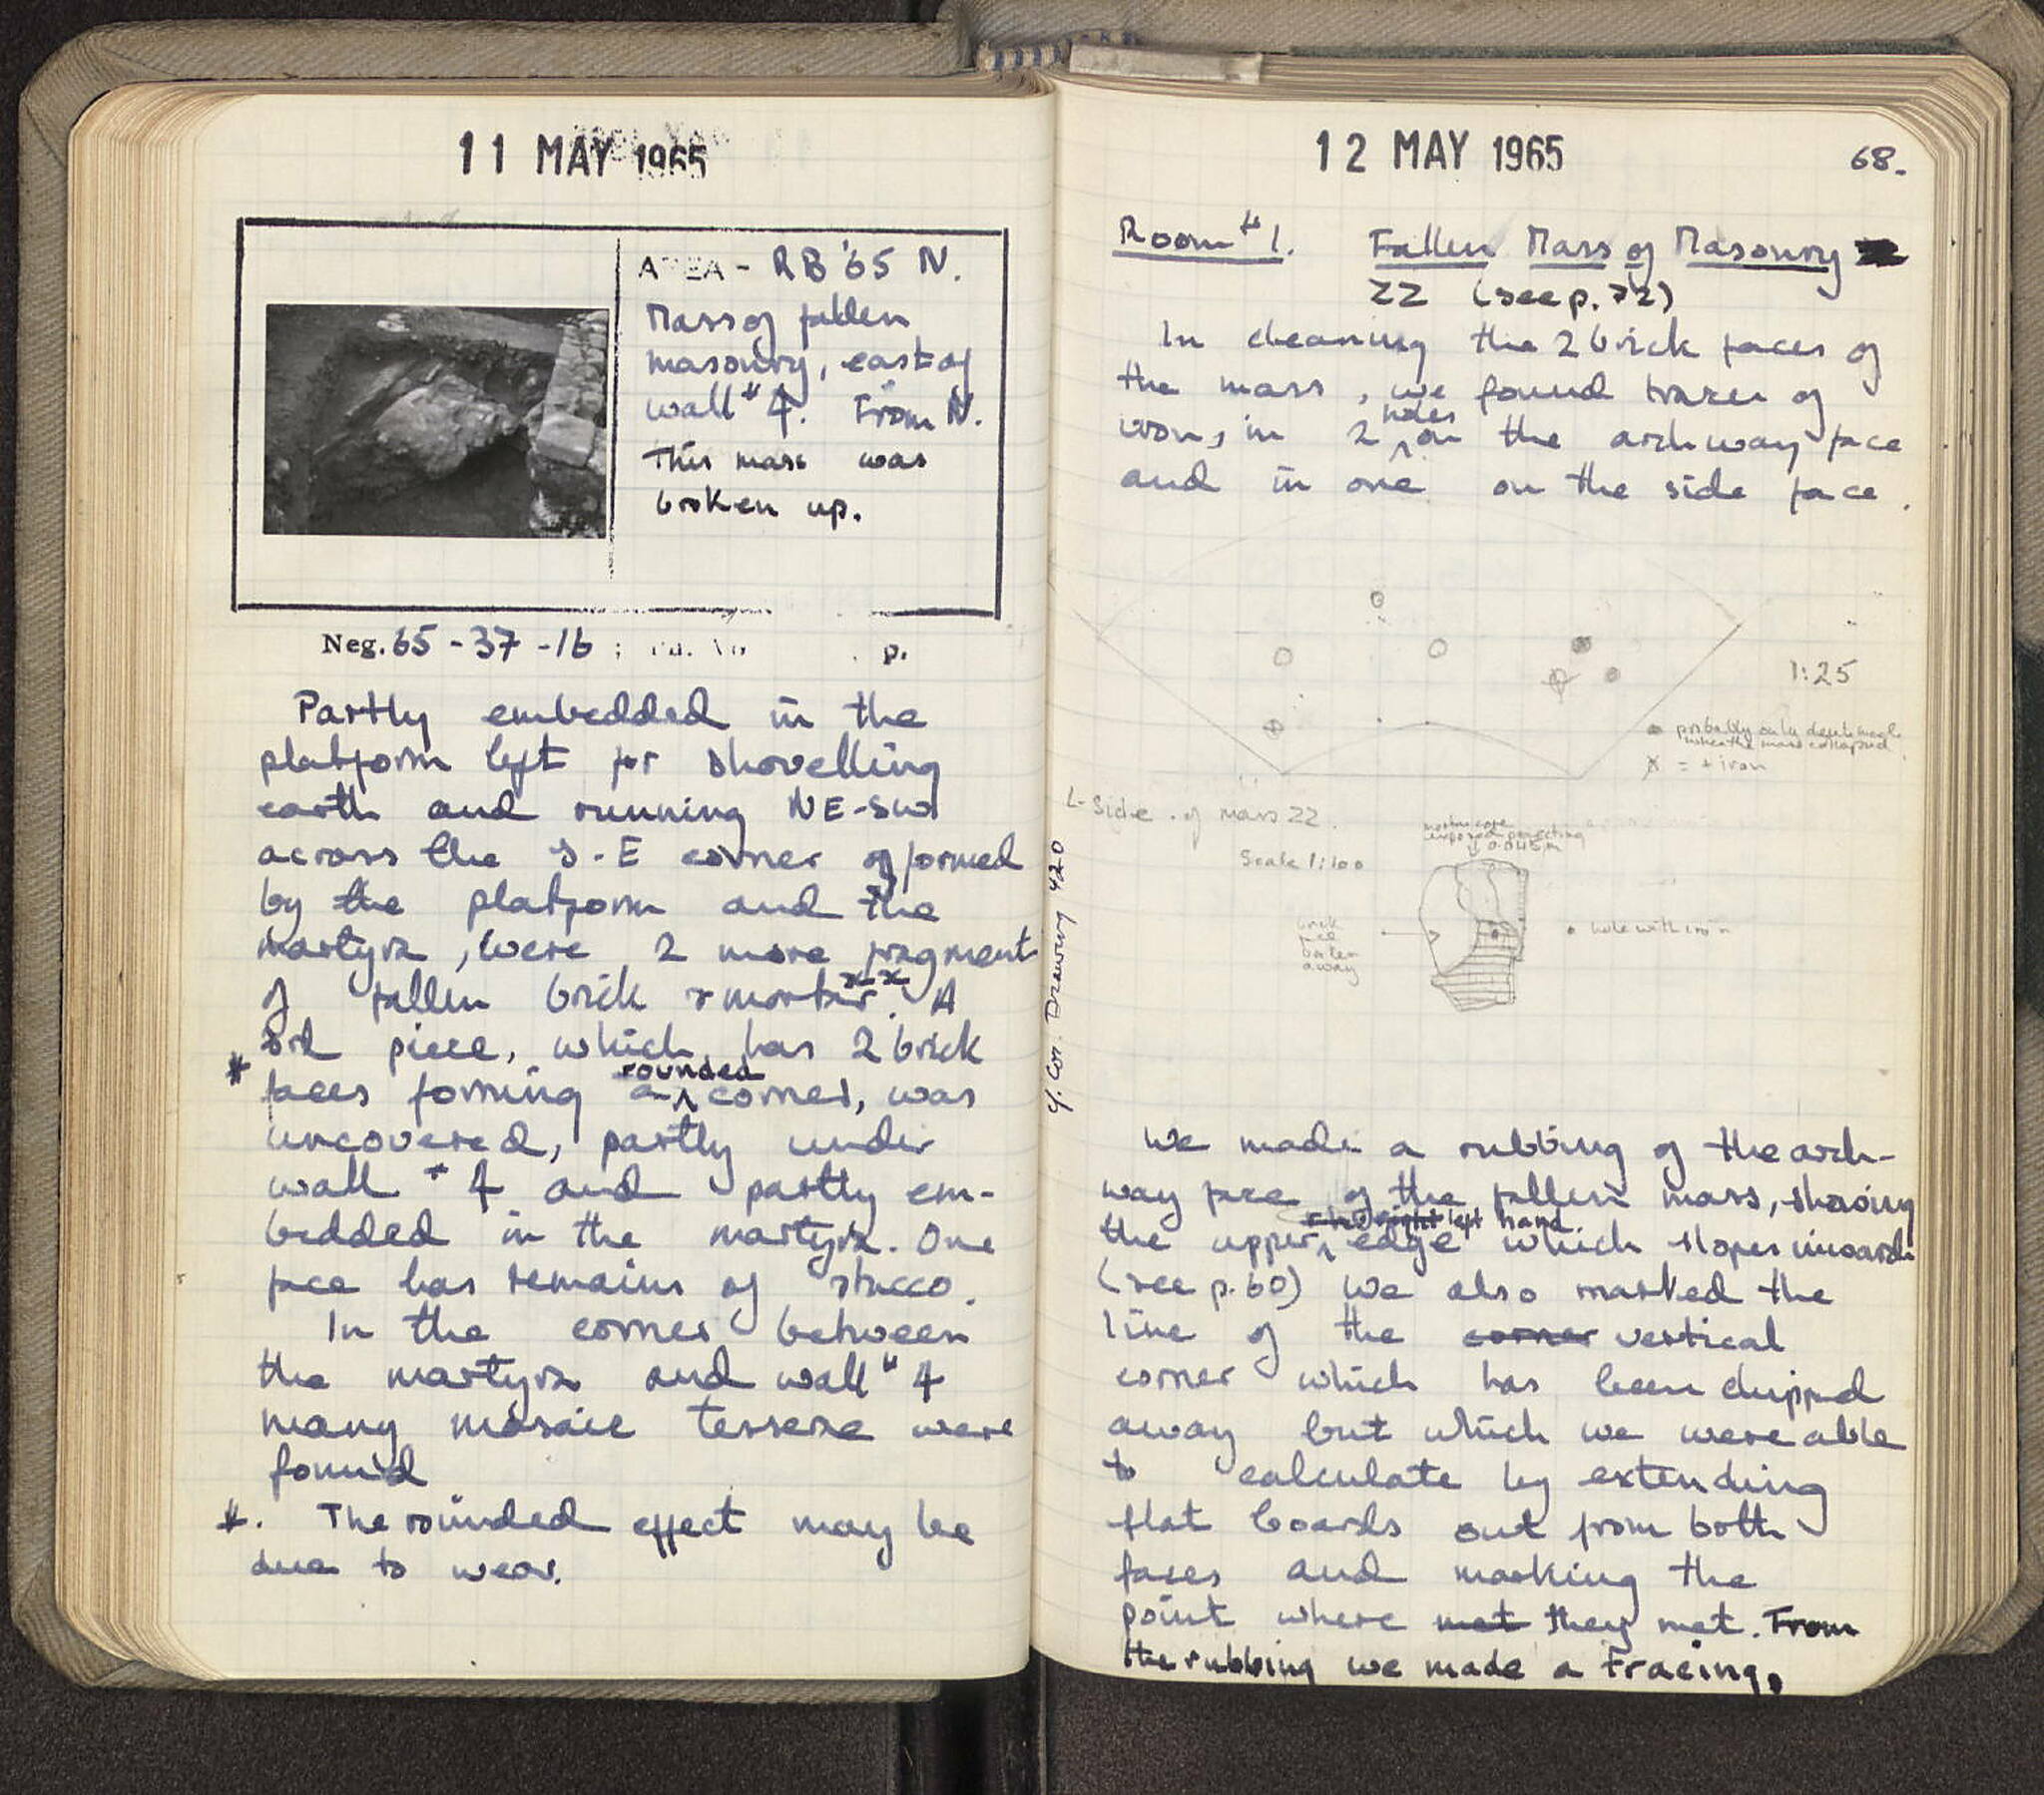 11 MAY 1965
AREA - RB '65 N.
Mass of fallen
masonry, east of
wall # 4. From N.
This mass was
broken up.
Neg. 65 - 37 - 16 ; p.
Partly embedded in the
platform left for shovelling
earth and running NE-SW
across the S-E corner formed
by the platform and the
martyra, were 2 more fragment
of fallen brick & mortar xx. A
3rd piece, which has 2 brick
* faces forming a rounded corner, was
uncovered, partly under
wall # 4 and partly em-
bedded in the martyra. One
face has remains of stucco.
In the corner between
the martyra and wall # 4
many mosaic tesserae were
found
*. The rounded effect may be
due to wear.
12 MAY 1965
68.
Room # 1. Fallen Mass of Masonry
ZZ (see p. 72)
In cleaning the 2 brick faces of
the mass, we found traces of
iron, in 2 holes on the archway face
and in one on the side face.
1:25
probably only dents made
when the mass collapsed
= + iron
L-Side of mass ZZ.
Scale 1:100
mortar core
exposed projecting
0.045m
brick
face
broken
away
hole with iron
cf. Cor. Drawing 420
We made a rubbing of the arch-
way face of the fallen mass, showing
the upper right left hand edge which slopes inward
(see p. 60) We also marked the
line of the corner vertical
corner which has been chipped
away but which we were able
to calculate by extending
flat boards out from both
faces and marking the
point where met they met. From
the rubbing we made a tracing.